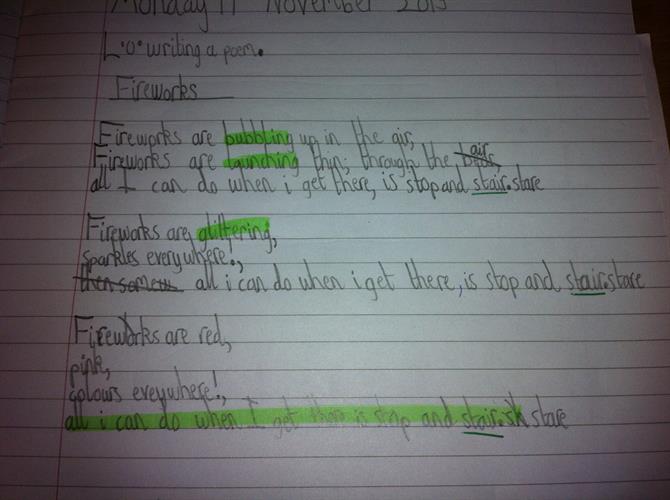 Monday 11 November 2013
L.O. writing a poem.
Fireworks
Fireworks are bubbling up in the air,
Fireworks are launching through the air
all I can do when i get there, is stop and stair. stare
Fireworks are glittering,
sparkles everywhere.,
all i can do when i get there, is stop and stair. stare
Fireworks are red,
pink,
colours eveywhere!,
all i can do when I get there is stop and stair. stare